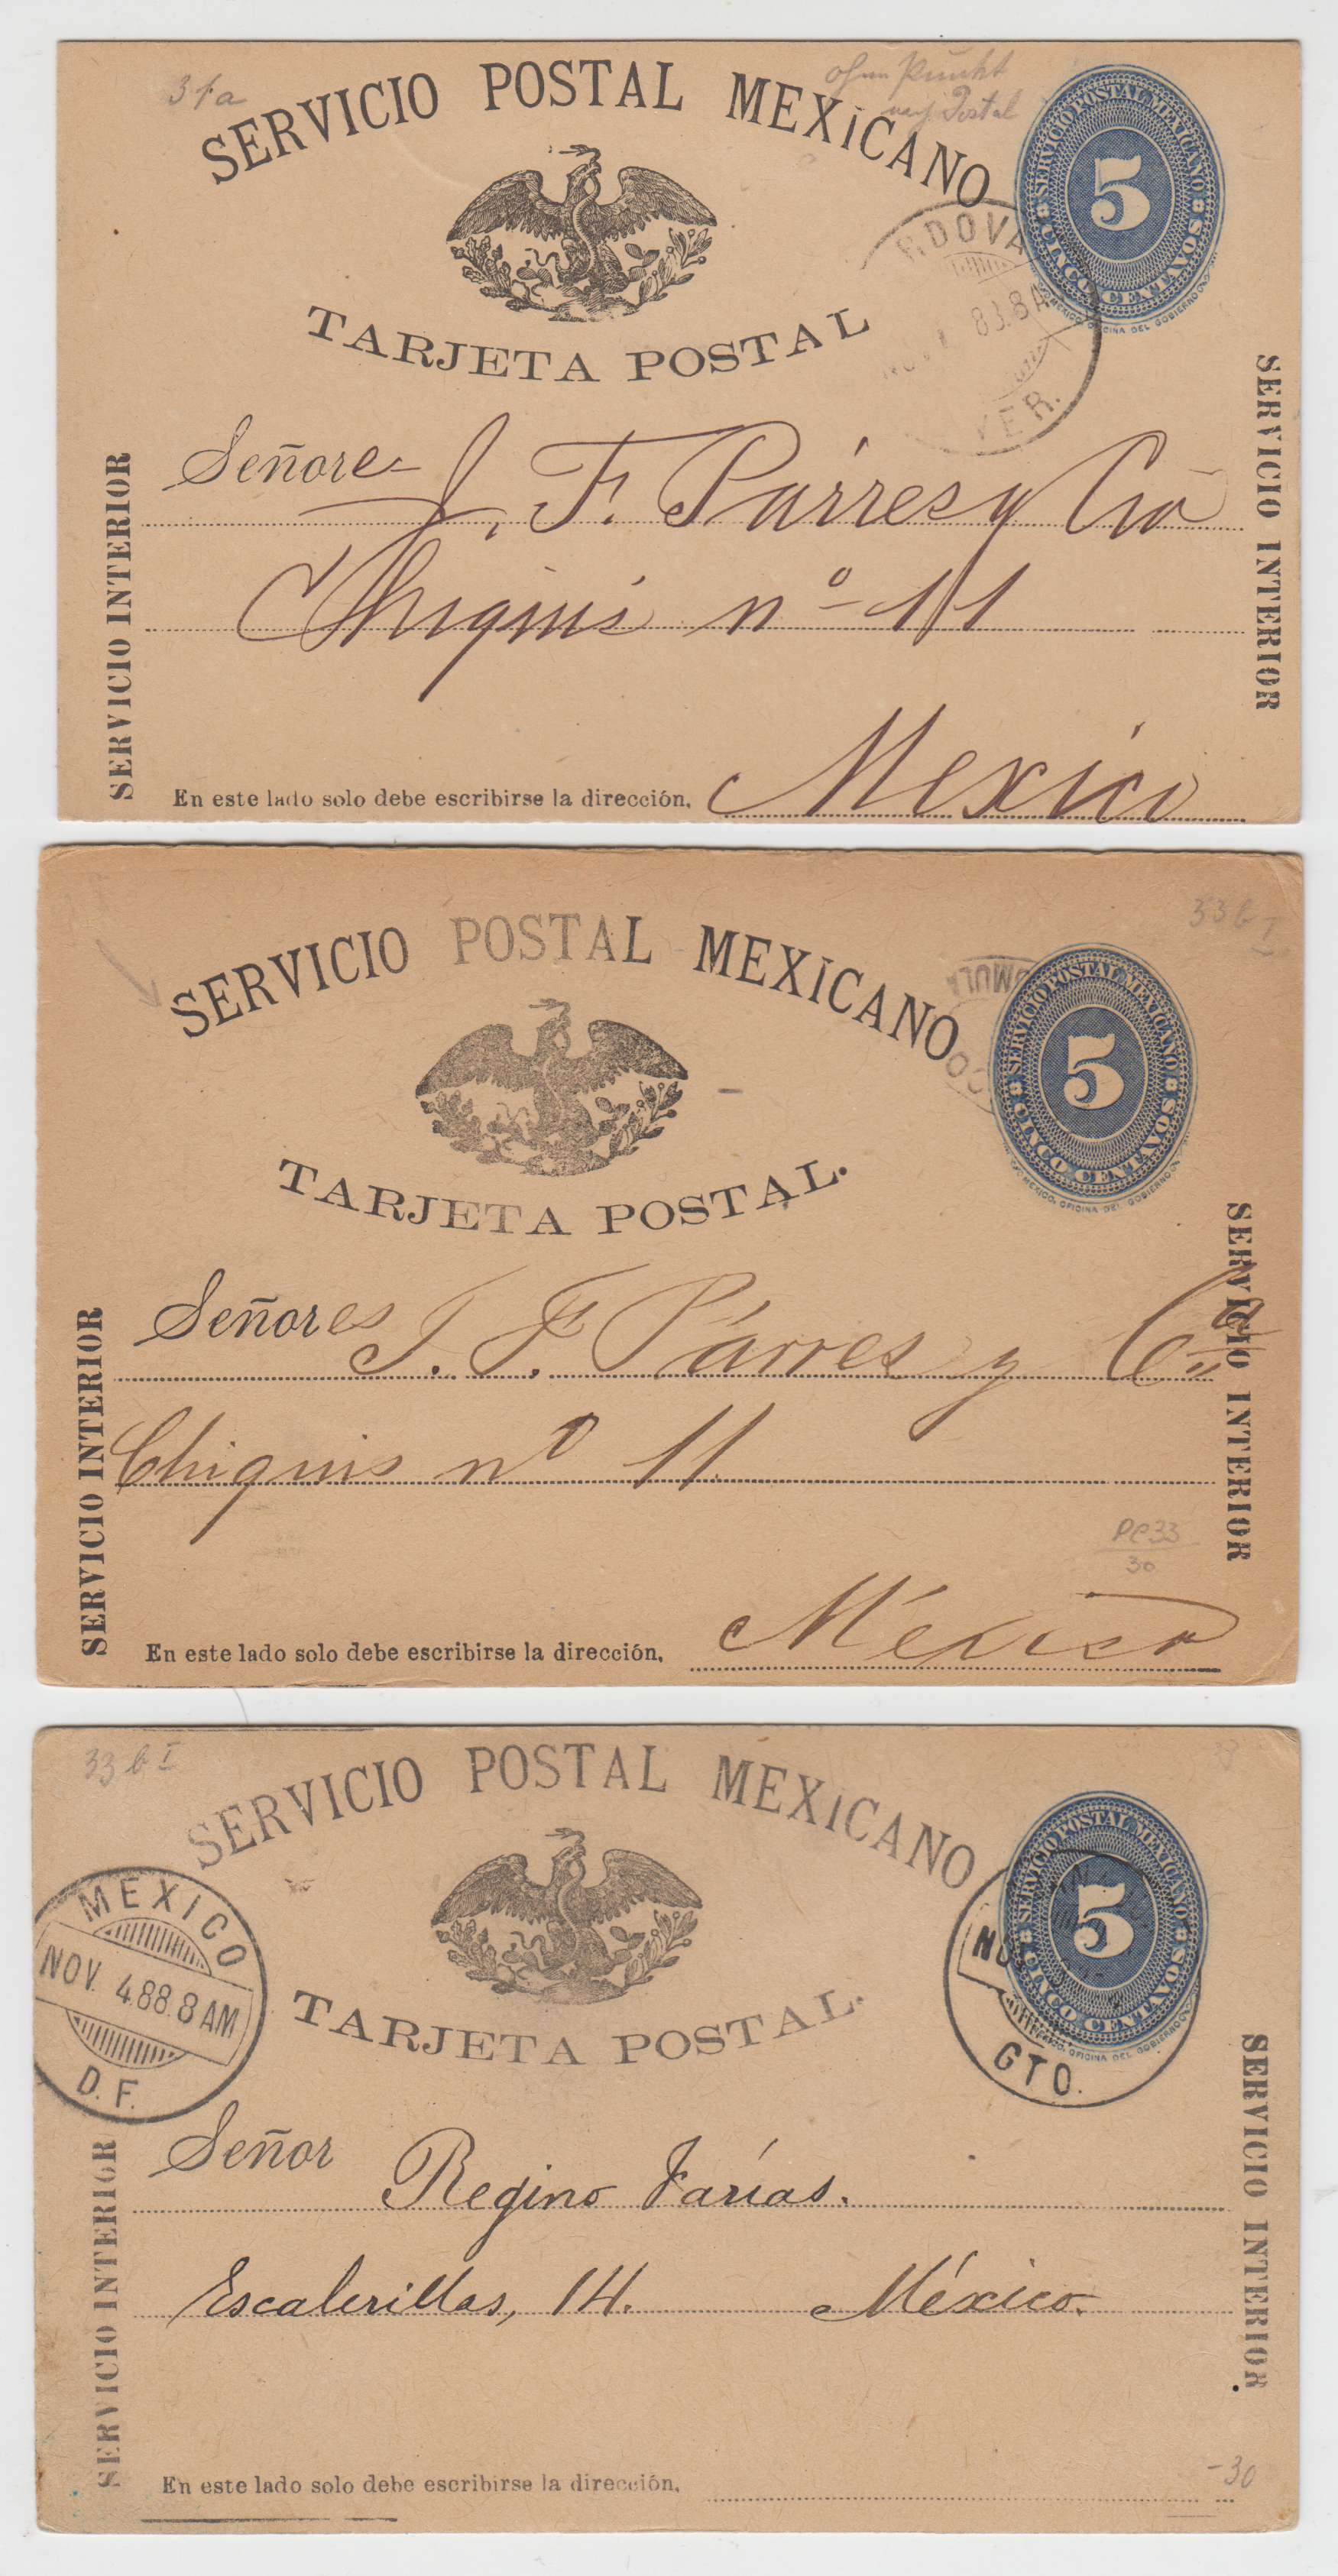 31a
ohne Punkt
nach Postal
SERVICIO POSTAL MEXICANO
SERVICIO POSTAL MEXICANO
5
CINCO CENTAVOS
MEXICO, OFICINA DEL GOBIERNO
TARJETA POSTAL
RDOVA
83.8A
VER.
SERVICIO INTERIOR
SERVICIO INTERIOR
Señores J. F. Párres y Cia
Chiquis nº 11
Mexico
En este lado solo debe escribirse la dirección.
33 b I
SERVICIO POSTAL MEXICANO
SERVICIO POSTAL MEXICANO
5
CINCO CENTAVOS
MEXICO, OFICINA DEL GOBIERNO
OMULA
CO
TARJETA POSTAL.
SERVICIO INTERIOR
SERVICIO INTERIOR
Señores J. F. Párres y Cia
Chiquis nº 11.
PC33
30
México
En este lado solo debe escribirse la dirección.
33 b I
SERVICIO POSTAL MEXICANO
SERVICIO POSTAL MEXICANO
5
CINCO CENTAVOS
MEXICO, OFICINA DEL GOBIERNO
MEXICO
NOV. 4.88.8 AM
D. F.
TARJETA POSTAL.
NO
GTO.
SERVICIO INTERIOR
SERVICIO INTERIOR
Señor Regino Farías.
Escalerillas, 14. México.
-30
En este lado solo debe escribirse la dirección.